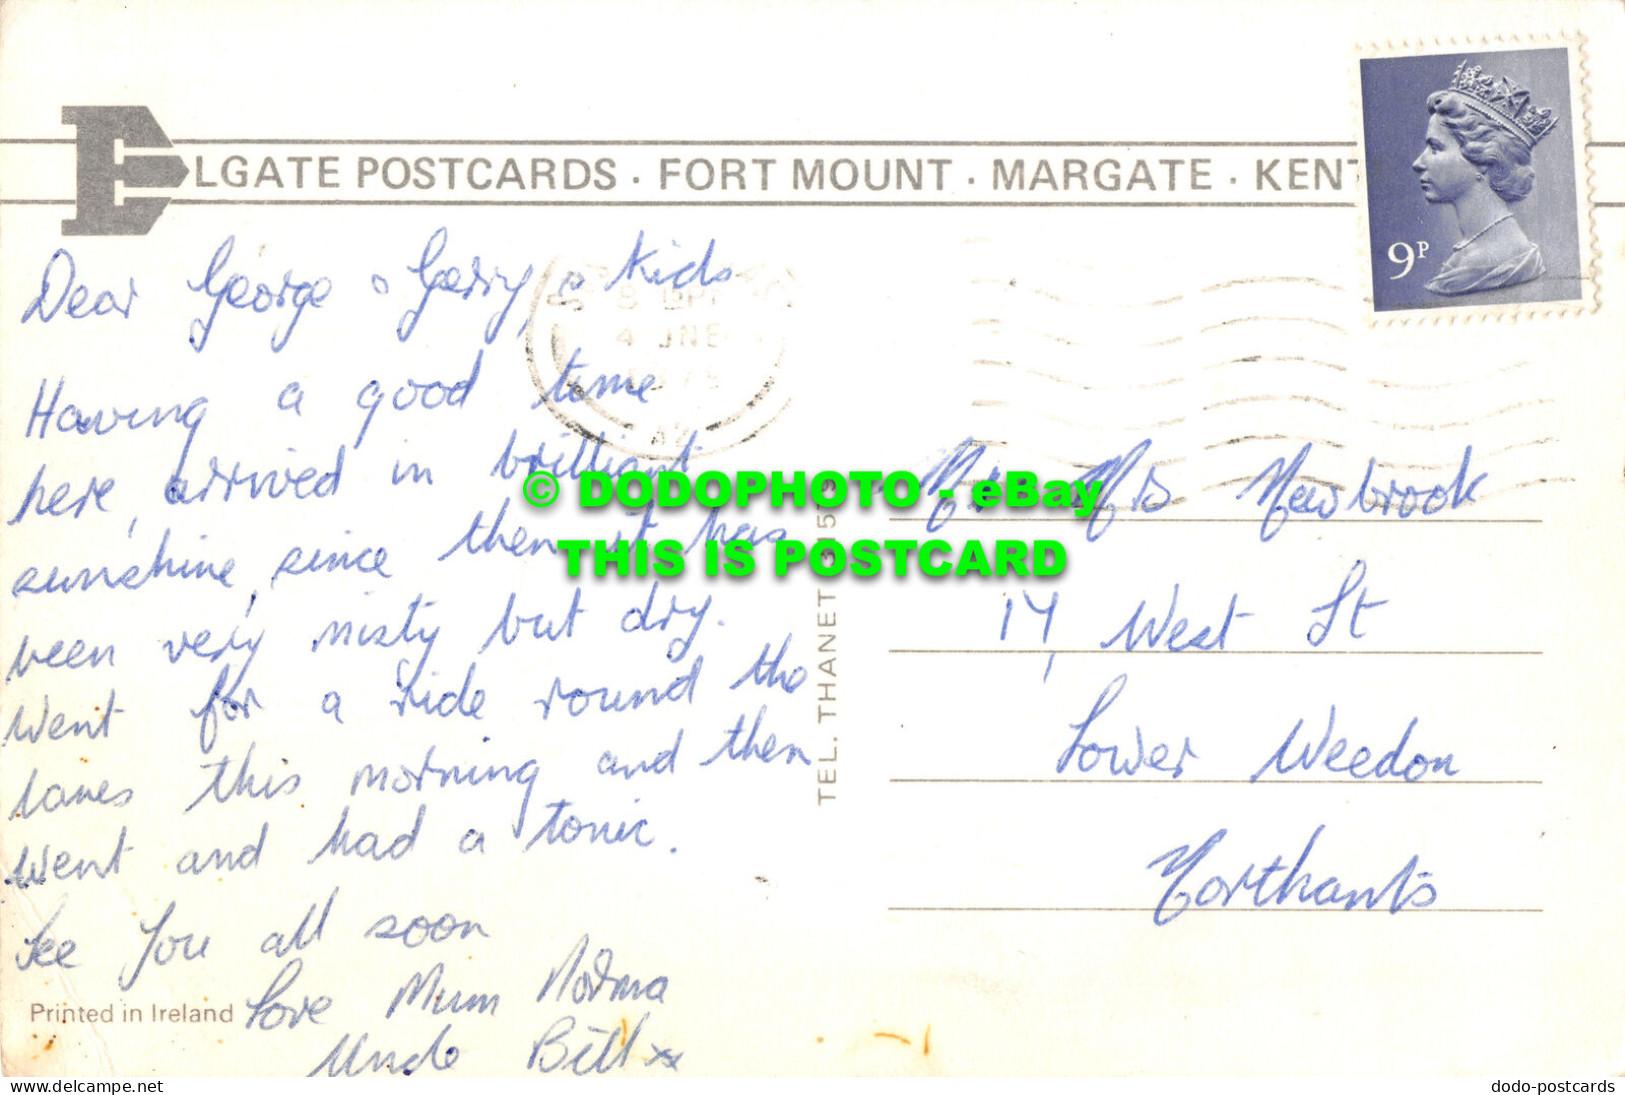 ELGATE POSTCARDS · FORT MOUNT · MARGATE · KENT
9P
Dear George & Gerry, & Kids
4 JNE
Having a good time
here, arrived in brilliant
sunshine, since then it has
been very misty but dry.
Went for a ride round the
lanes this morning and then
went and had a tonic.
See you all soon
Love Mum Norma
Uncle Bill xx
Printed in Ireland
TEL. THANET
Mr Mrs Newbrook
17, West St
Lower Weedon
Northants
© DODOPHOTO - eBay
THIS IS POSTCARD
delcampe.net
dodo-postcards